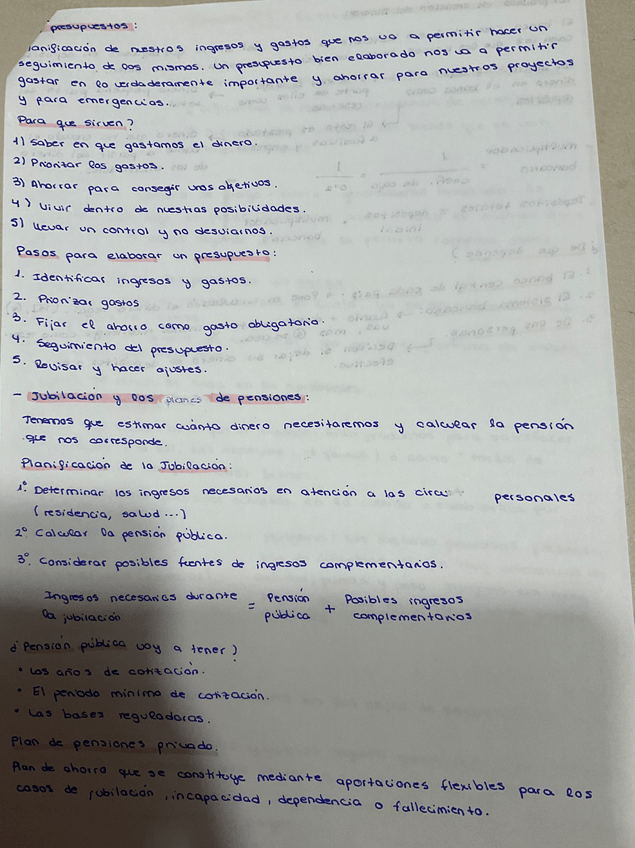 presupuestos:
anificación de nuestros ingresos y gastos que nos va a permitir hacer un
seguimiento de los mismos. Un presupuesto bien elaborado nos va a permitir
gastar en lo verdaderamente importante y ahorrar para nuestros proyectos
y para emergencias.
Para que sirven?
1) Saber en que gastamos el dinero.
2) Priorizar los gastos.
3) Ahorrar para conseguir unos objetivos.
4) Vivir dentro de nuestras posibilidades.
5) Llevar un control y no desviarnos.
Pasos para elaborar un presupuesto:
1. Identificar ingresos y gastos.
2. Priorizar gastos
3. Fijar el ahorro como gasto obligatorio.
4. Seguimiento del presupuesto.
5. Revisar y hacer ajustes.
- Jubilación y los planes de pensiones:
Tenemos que estimar cuánto dinero necesitaremos y calcular la pensión
que nos corresponde.
Planificación de la Jubilación:
1º. Determinar los ingresos necesarios en atención a las circu personales
(residencia, salud...)
2º Calcular la pensión pública.
3º. Considerar posibles fuentes de ingresos complementarios.
Ingresos necesarios durante la jubilación = Pensión pública + Posibles ingresos complementarios
¿Pensión pública voy a tener?
• Los años de cotización.
• El periodo mínimo de cotización.
• Las bases reguladoras.
Plan de pensiones privado.
Plan de ahorro que se constituye mediante aportaciones flexibles para los
casos de jubilación, incapacidad, dependencia o fallecimiento.